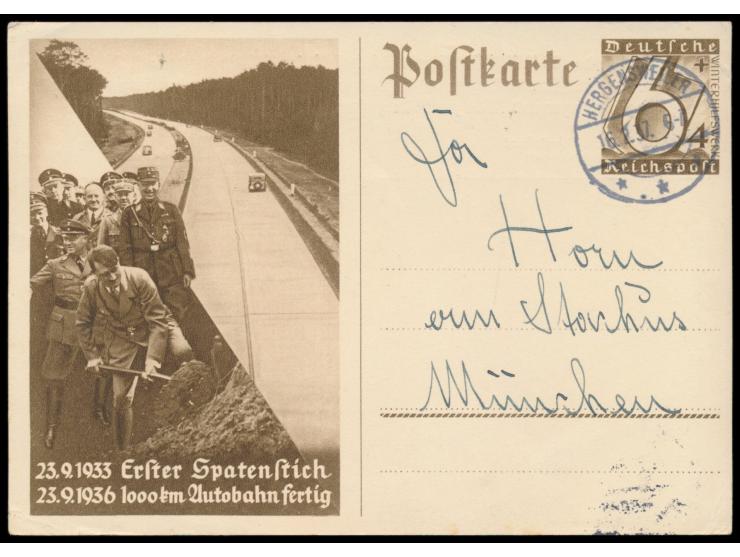 Postkarte
Deutsche
6
+
4
Winterhilfswerk
Reichspost
HERGENSWEILER
Horn
am Stachus
München
23.9.1933 Erster Spatenstich
23.9.1936 1000 km Autobahn fertig